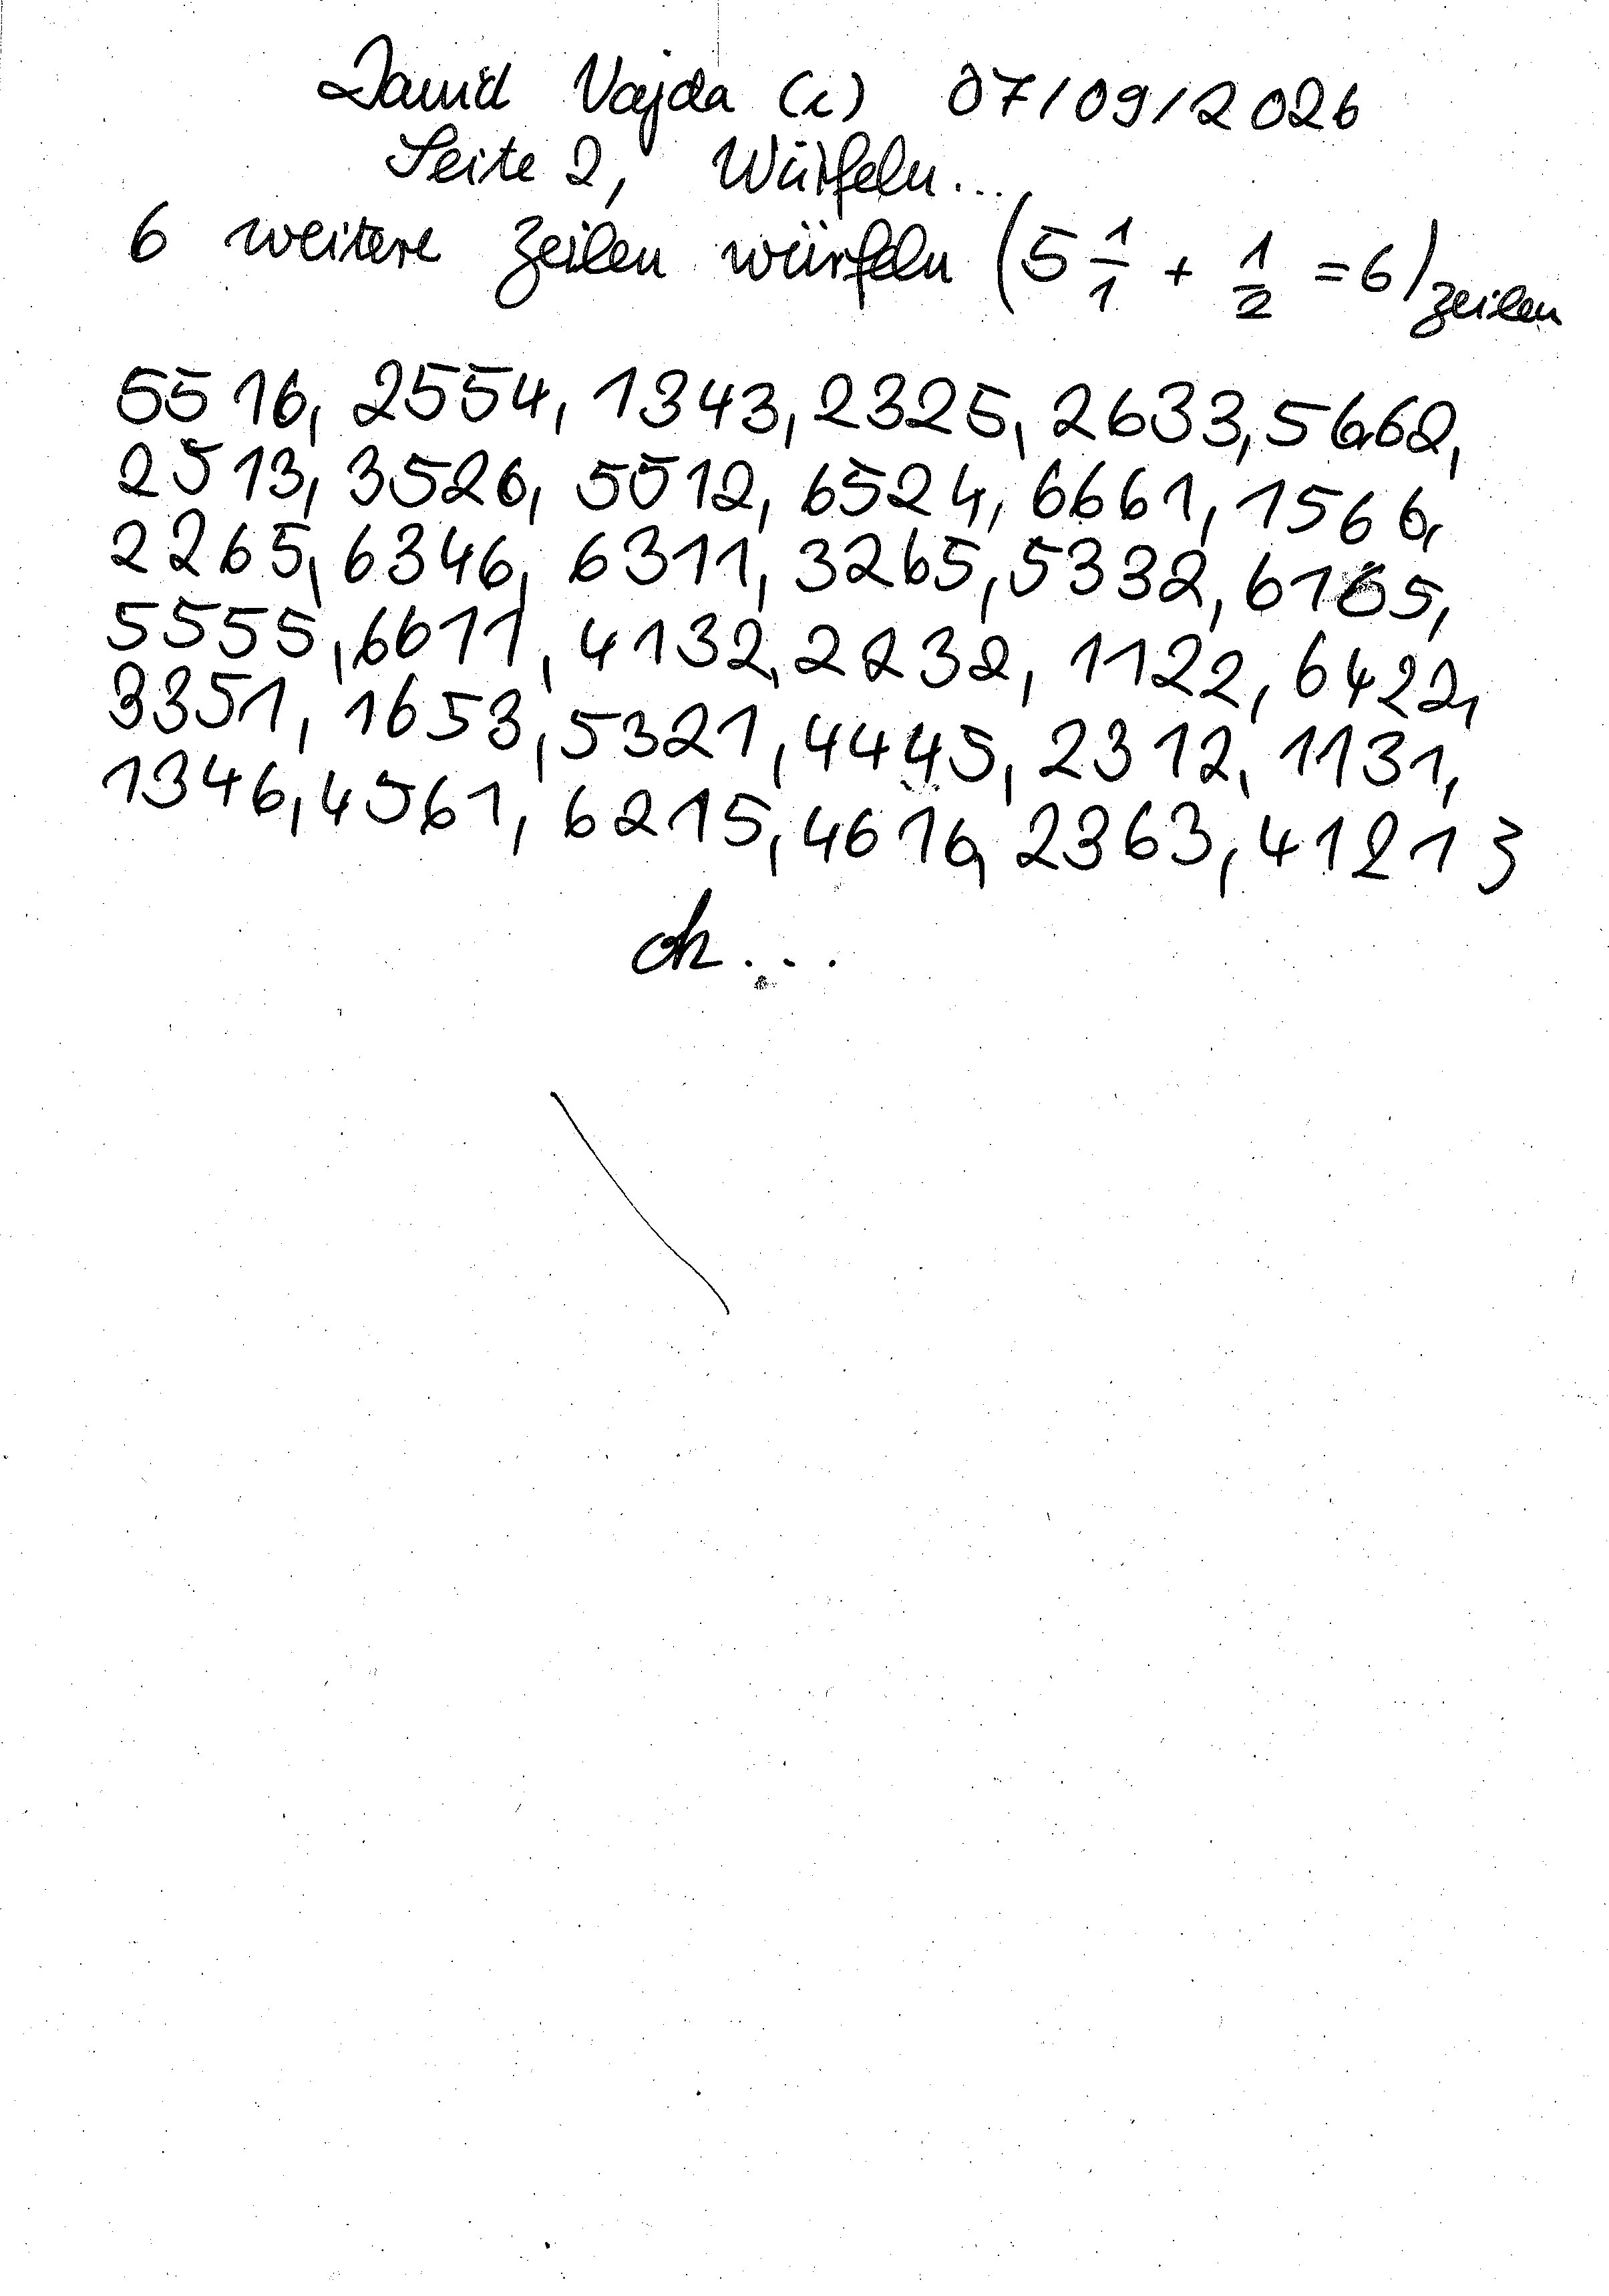 David Vajda (c) 07/09/2026
Seite 2, Würfeln...
6 weitere Zeilen würfeln (5 1/1 + 1/2 = 6) Zeilen
5516, 2554, 1343, 2325, 2633, 5662,
2513, 3526, 5512, 6524, 6661, 1566,
2265, 6346, 6311, 3265, 5332, 6165,
5555, 6611, 4132, 2232, 1122, 6422,
3351, 1653, 5321, 4445, 2312, 1131,
1346, 4561, 6215, 4616, 2363, 4121 }
ok...